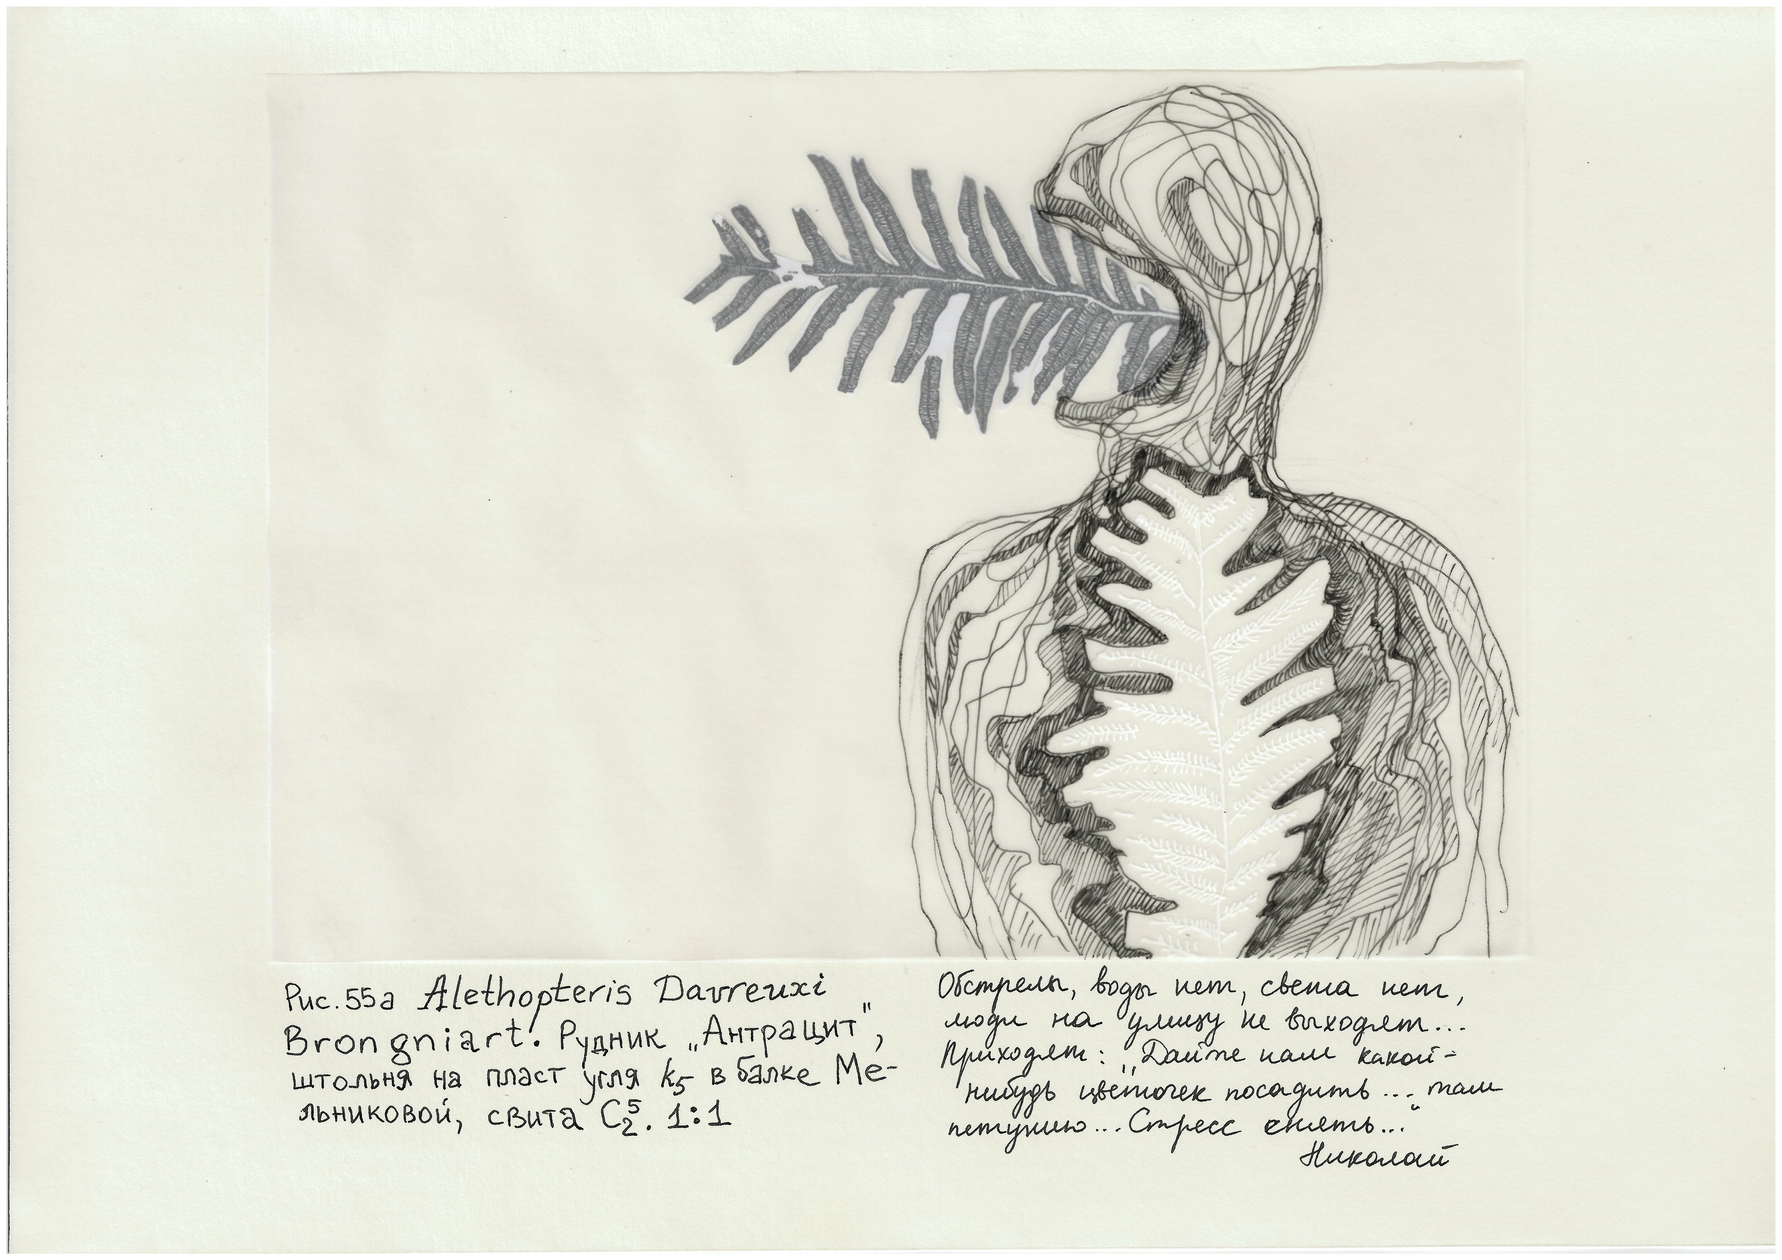 Рис. 55а Alethopteris Davreuxi
Brongniart. Рудник „Антрацит",
штольня на пласт угля k5 в балке Ме-
льниковой, свита C⁵₂. 1:1
Обстрелы, воды нет, света нет,
люди на улицу не выходят...
Приходят: „Дайте нам какой-
нибудь цветочек посадить... там
петунию... Стресс снять..."
Николай